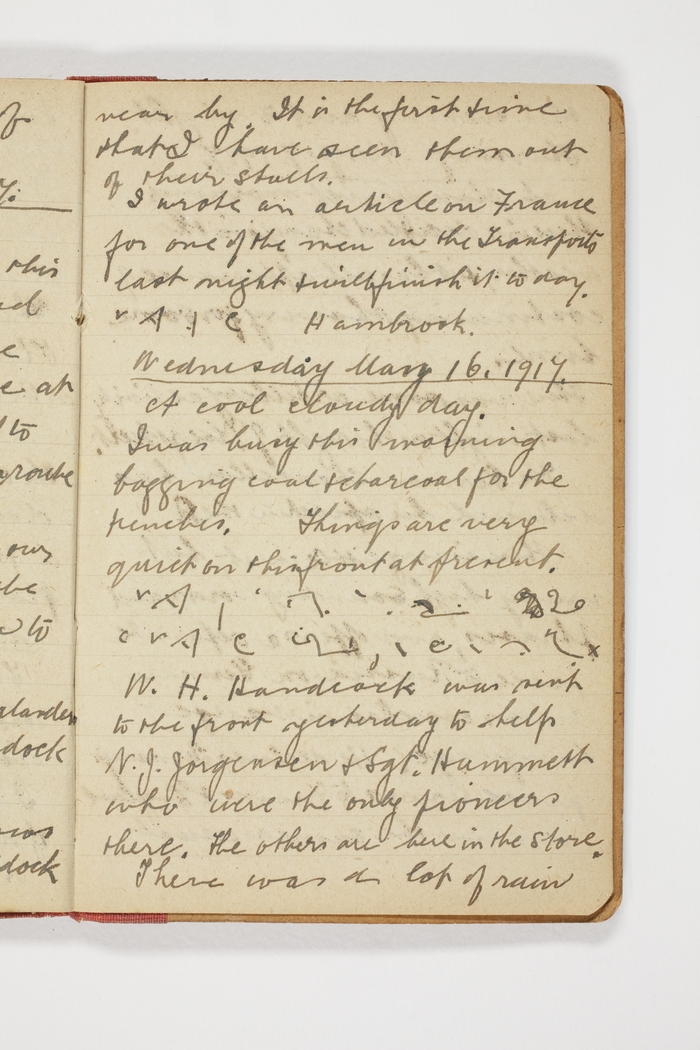 near by. It is the first time
that I have seen them out
of their stalls.
I wrote an article on France
for one of the men in the Transports
last night & will finish it to day.
Hambrook.
Wednesday May 16. 1917.
A cool cloudy day.
I was busy this morning
bagging coal & charcoal for the
trenches. Things are very
quiet on this front at present.
W. H. Handcock was sent
to the front yesterday to help
N. J. Jorgensen & Sgt. Hammett
who were the only pioneers
there. The others are here in the store.
There was a lot of rain
this
e at
to
our
to
dock
dock